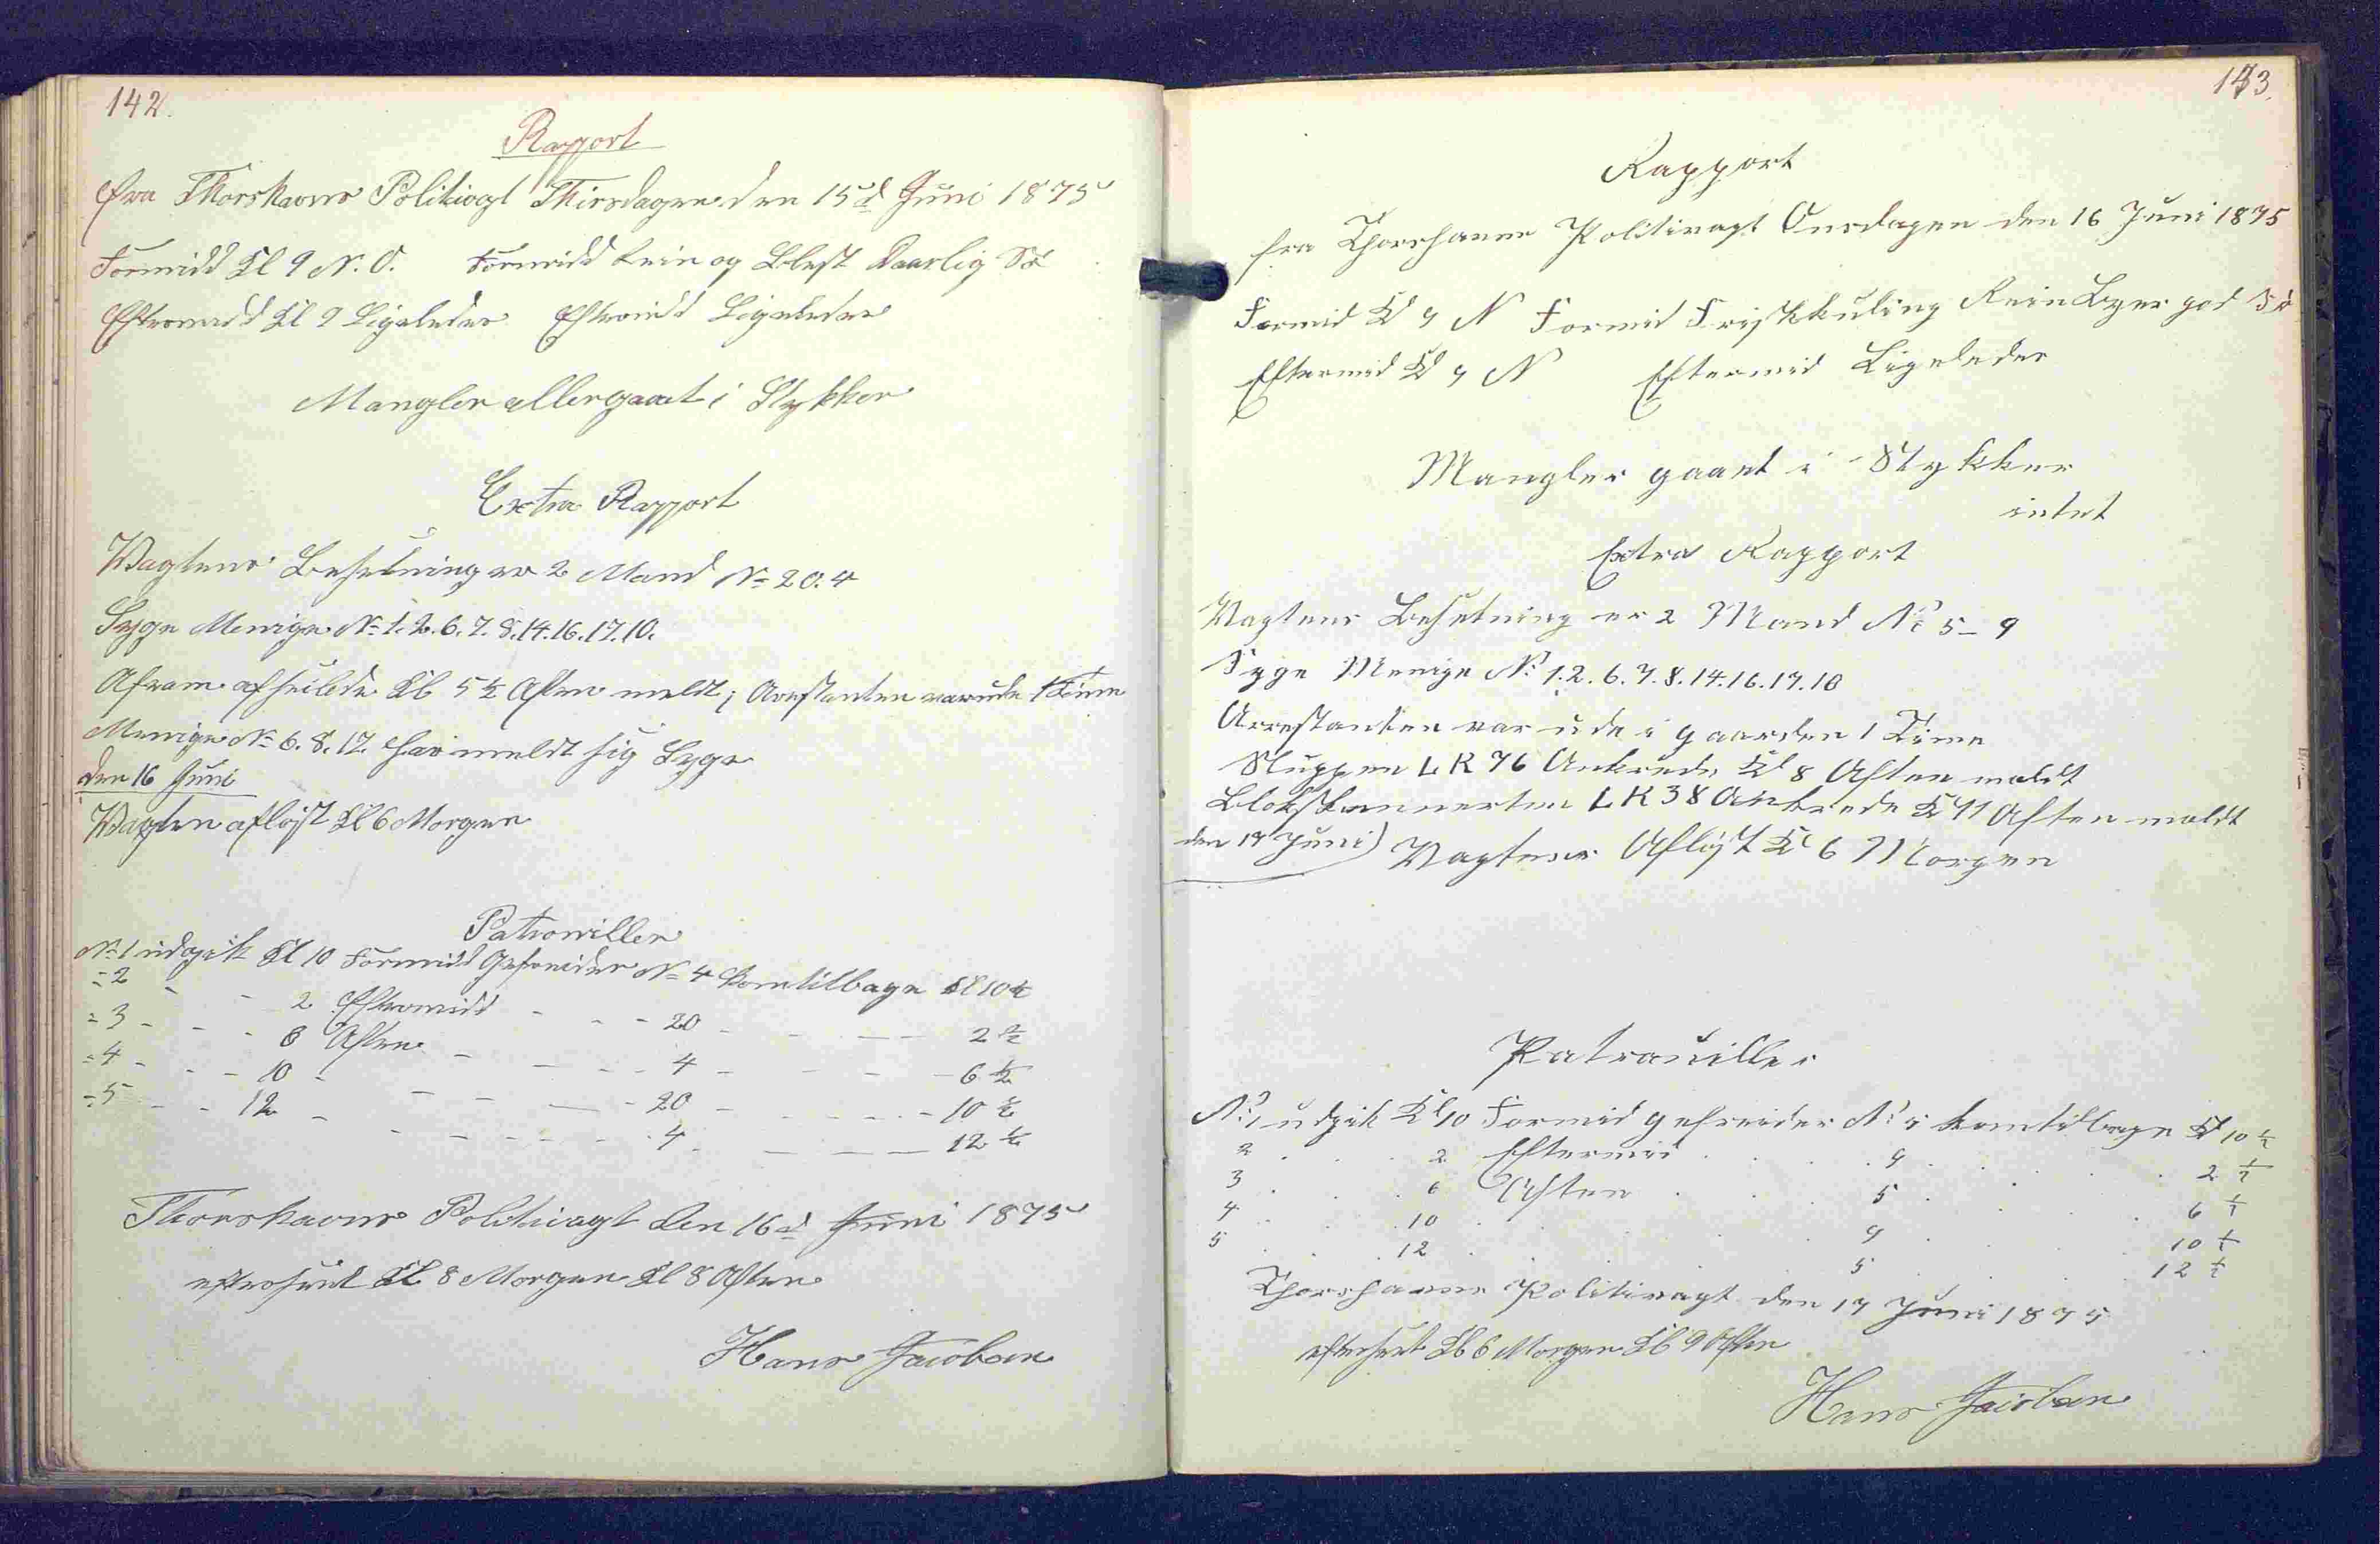 142.
Rapport
fra Thorshavns Politivagt Thirsdagen den 15d Juni 1875
Formidd Kl 9 N. O. Formidd Rein og Blest Daarlig Sö
Eftermidd Kl 9 Ligeledes Eftermidd Ligeledes
Mangler eller gaaet i Stykker
Extra Rapport
Vagtens Besetning er 2 Mand No 20. 4
Syge Menige No 1. 2. 6. 7. 8. 14. 16. 17. 10.
afseilede Kl 5½ Aften meldt; Arrestanten var ude 1 Time
Menige No 6. 8. 17. har meldt sig Syge
den 16 Juni
Vagten aflöst Kl 6 Morgen
Patrouiller
No 1 udgik Kl 10 Formidd Gefreider No 4 kom tilbage Kl 10½
= 2 - - 2 Eftermidd - - - 20 - - - 2½
= 3 - - - 6 Aften - - - 4 - - - 6½
= 4 - - - 10 - - - - 20 - - - 10½
= 5 - - 12 - - - - 4 - - - 12½
Thorshavns Politivagt den 16d Juni 1875
efterseet Kl 8 Morgen Kl 8 Aften
Hans Jacobsen
143.
Rapport
fra Thorshavns Politivagt Onsdagen den 16 Juni 1875
Formid Kl 9 N Formid Frisk kuling Rein Byer god Sö
Eftermid Kl 9 N Eftermid Ligeledes
Mangler gaaet i Stykker
intet
Extra Rapport
Vagtens Besetning er 2 Mand No 5 - 9
Syge Menige No 1. 2. 6. 7. 8. 14. 16. 17. 10
Arrestanten var ude i gaarden 1 Time
Sluppen LK 76 Ankrede Kl 8 Aften meldt
LK 38 Ankrede Kl 11 Aften meldt
den 17 Juni) Vagten er Aflöst Kl 6 Morgen
Patrouiller
No 1 udgik Kl 10 Formid gefreider No 5 kom tilbage Kl 10½
2 . . . 2 Eftermid . . . 9 . . . 2½
3 . . . 6 Aften . . . 5 . . . 6½
4 . . . 10 . . . 9 . . . 10½
5 . . . 12 . . . 5 . . . 12½
Thorshavns Politivagt den 17 Juni 1875
efterseet Kl 6 Morgen Kl 9 Aften
Hans Jacobsen